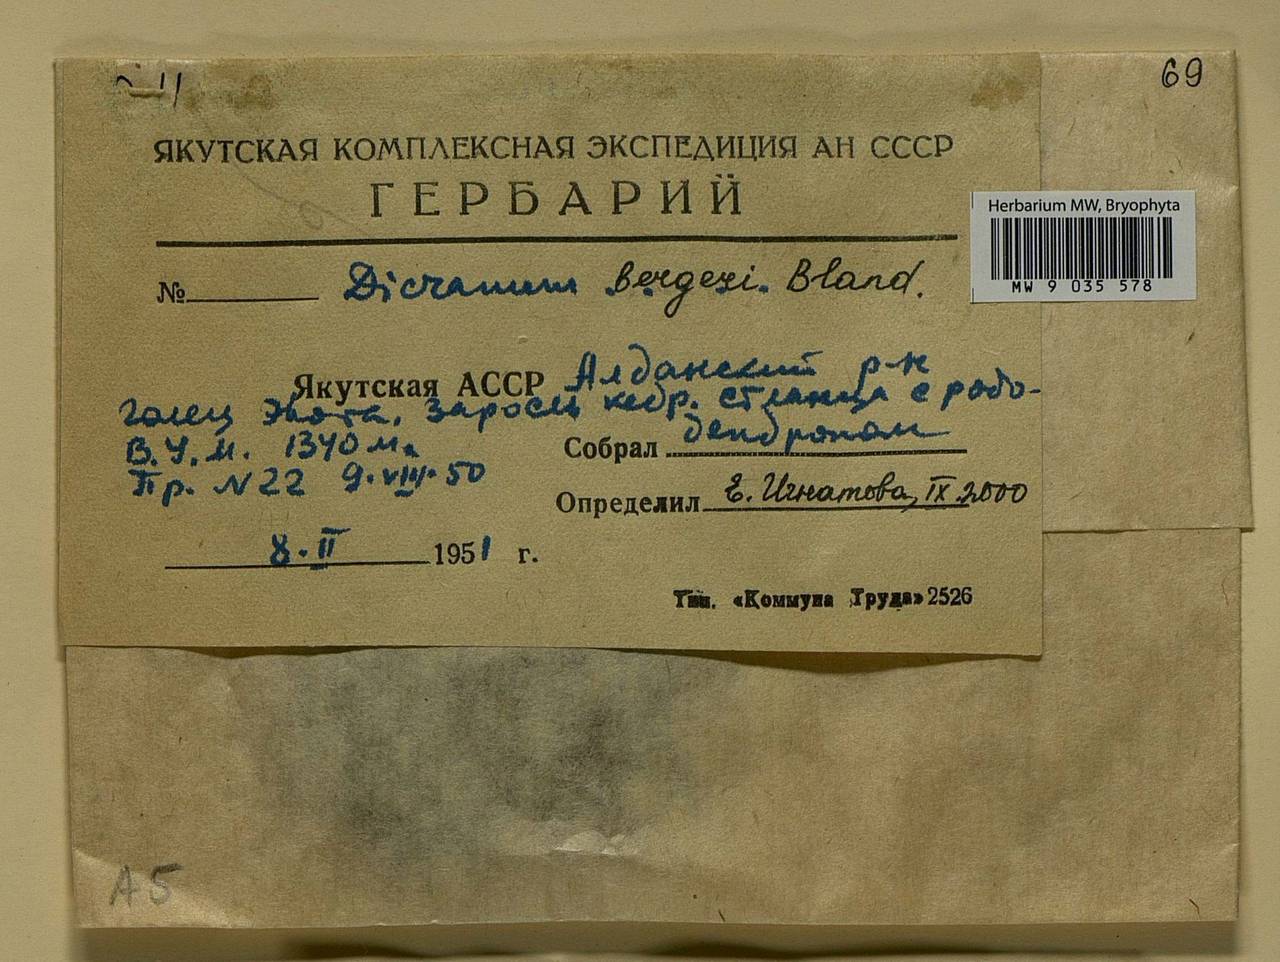 69
ЯКУТСКАЯ КОМПЛЕКСНАЯ ЭКСПЕДИЦИЯ АН СССР
ГЕРБАРИЙ
Herbarium MW, Bryophyta
MW 9 035 578
№ Dicranum bergeri Bland.
Якутская АССР Алданский р-н
голец Эвота. Заросль кедр. стланца с родо-
дендроном
В.У.М. 1340 м.
Собрал
Пр. N22 9.VIII.50
Определил Е. Игнатова, IX.2000
8.II 1951 г.
Тип. «Коммуна Труда» 2526
А5